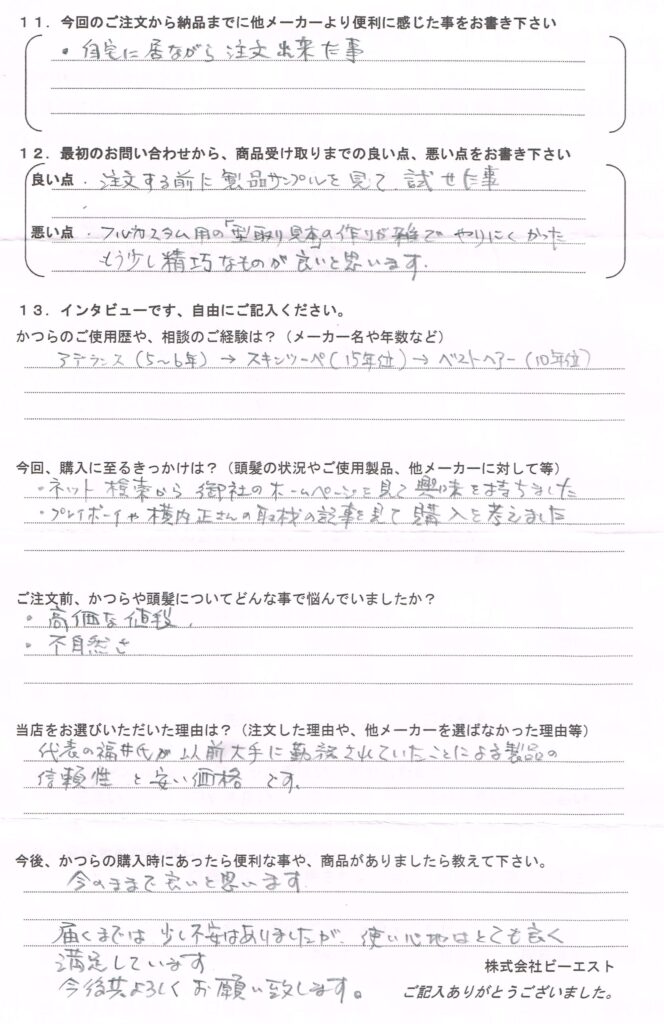 11．今回のご注文から納品までに他メーカーより便利に感じた事をお書き下さい
・自宅に居ながら注文出来た事
12．最初のお問い合わせから、商品受け取りまでの良い点、悪い点をお書き下さい
良い点・注文する前に製品サンプルを見て、試せた事
・
悪い点・フルカスタム用の「型取り見本」の作りが雑でやりにくかった
もう少し精巧なものが良いと思います.
13．インタビューです、自由にご記入ください。
かつらのご使用歴や、相談のご経験は？（メーカー名や年数など）
アデランス（5〜6年）→ スキンツーペ（15年位）→ ベストヘアー（10年位）
今回、購入に至るきっかけは？（頭髪の状況やご使用製品、他メーカーに対して等）
・ネット検索から御社のホームページを見て興味を持ちました
・プレイボーイや横内正さんの取材の記事を見て購入を考えました
ご注文前、かつらや頭髪についてどんな事で悩んでいましたか？
・高価な値段、
・不自然さ
当店をお選びいただいた理由は？（注文した理由や、他メーカーを選ばなかった理由等）
代表の福井氏が以前大手に勤放されていたことによる製品の
信頼性と安い価格です。
今後、かつらの購入時にあったら便利な事や、商品がありましたら教えて下さい。
今のままで良いと思います
届くまでは少し不安はありましたが、使い心地はとても良く
満足しています
株式会社ビーエスト
今後共よろしくお願い致します。
ご記入ありがとうございました。